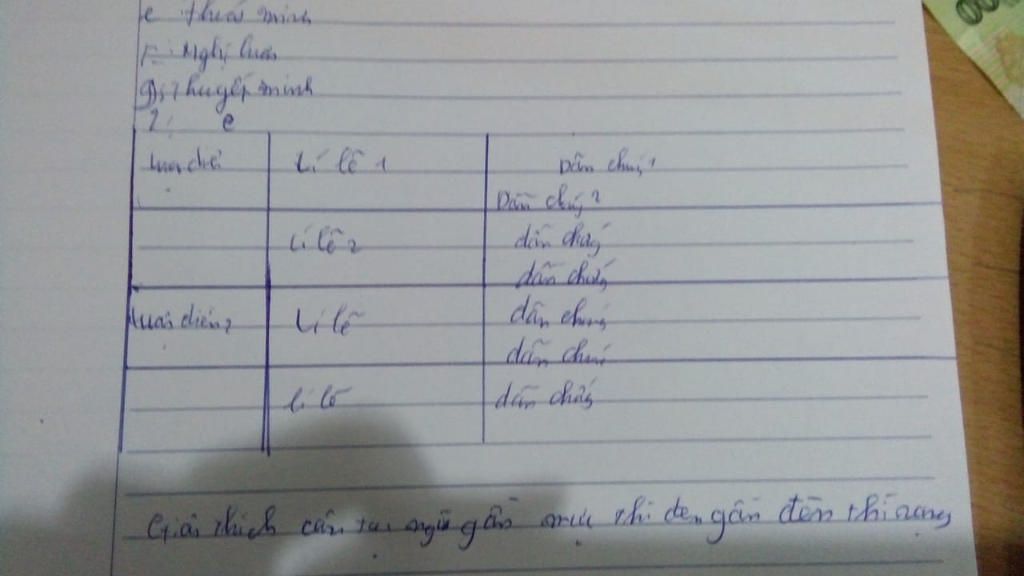 e thuế minh
F: Nghị luận
g, thuyết minh
2: e
Lí lẽ 1 Dẫn chứng 1
Dẫn chứng 2
Lí lẽ 2 dẫn chứng
dẫn chứng
Luận điểm 2 Lí lẽ dẫn chứng
dẫn chứng
lí lẽ dẫn chứng
Giải thích câu tục ngữ gần mực thì đen gần đèn thì rạng